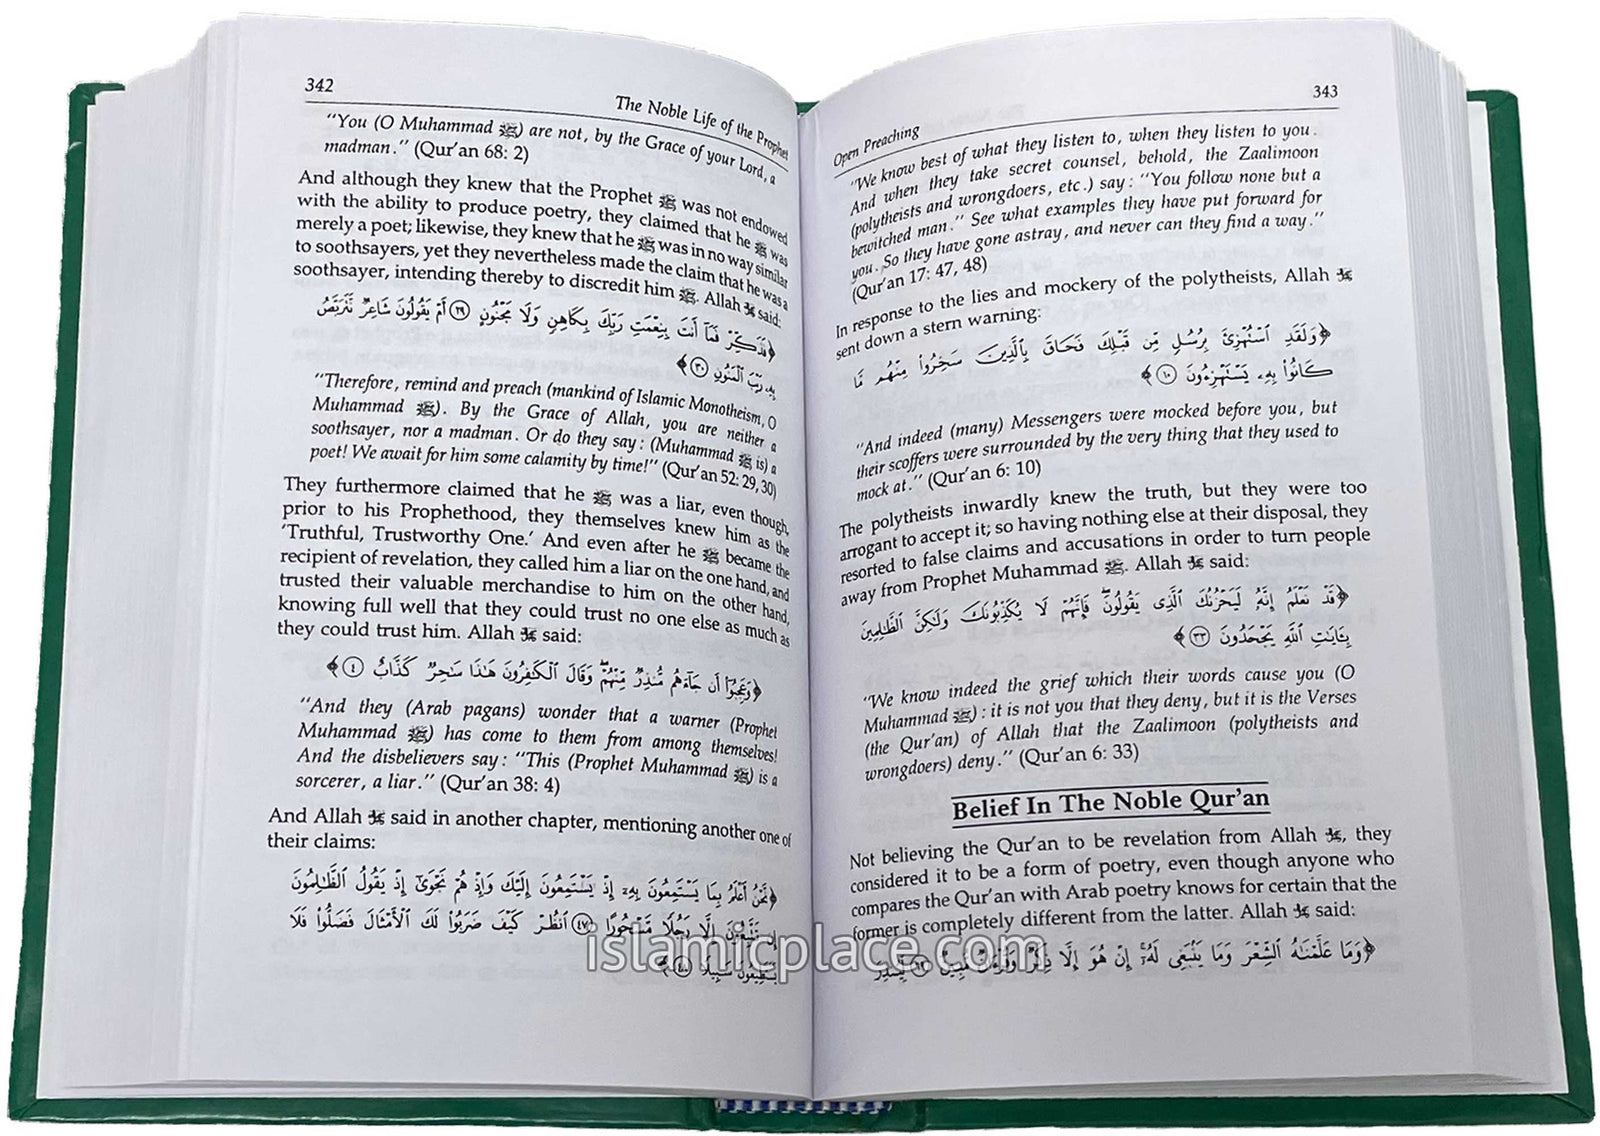 342
The Noble Life of the Prophet
"You (O Muhammad ﷺ) are not, by the Grace of your Lord, a
madman." (Qur'an 68: 2)
And although they knew that the Prophet ﷺ was not endowed
with the ability to produce poetry, they claimed that he ﷺ was
merely a poet; likewise, they knew that he ﷺ was in no way similar
to soothsayers, yet they nevertheless made the claim that he was a
soothsayer, intending thereby to discredit him ﷺ. Allah ﷻ said:
﴿فَذَكِّرْ فَمَآ أَنتَ بِنِعْمَتِ رَبِّكَ بِكَاهِنٍ وَلَا مَجْنُونٍ ٢٩ أَمْ يَقُولُونَ شَاعِرٌ نَّتَرَبَّصُ
بِهِۦ رَيْبَ ٱلْمَنُونِ ٣٠﴾
"Therefore, remind and preach (mankind of Islamic Monotheism, O
Muhammad ﷺ). By the Grace of Allah, you are neither a
soothsayer, nor a madman. Or do they say: (Muhammad ﷺ is) a
poet! We await for him some calamity by time!" (Qur'an 52: 29, 30)
They furthermore claimed that he ﷺ was a liar, even though,
prior to his Prophethood, they themselves knew him as the
'Truthful, Trustworthy One.' And even after he ﷺ became the
recipient of revelation, they called him a liar on the one hand, and
trusted their valuable merchandise to him on the other hand,
knowing full well that they could trust no one else as much as
they could trust him. Allah ﷻ said:
﴿وَعَجِبُوٓا۟ أَن جَآءَهُم مُّنذِرٌ مِّنْهُمْ ۖ وَقَالَ ٱلْكَـٰفِرُونَ هَـٰذَا سَـٰحِرٌ كَذَّابٌ ٤﴾
"And they (Arab pagans) wonder that a warner (Prophet
Muhammad ﷺ) has come to them from among themselves!
And the disbelievers say: "This (Prophet Muhammad ﷺ) is a
sorcerer, a liar." (Qur'an 38: 4)
And Allah ﷻ said in another chapter, mentioning another one of
their claims:
﴿نَّحْنُ أَعْلَمُ بِمَا يَسْتَمِعُونَ بِهِۦٓ إِذْ يَسْتَمِعُونَ إِلَيْكَ وَإِذْ هُمْ نَجْوَىٰٓ إِذْ يَقُولُ ٱلظَّـٰلِمُونَ
إِن تَتَّبِعُونَ إِلَّا رَجُلًا مَّسْحُورًا ٤٧ ٱنظُرْ كَيْفَ ضَرَبُوا۟ لَكَ ٱلْأَمْثَالَ فَضَلُّوا۟ فَلَا
يَسْتَطِيعُونَ سَبِيلًا ٤٨﴾
343
Open Preaching
"We know best of what they listen to, when they listen to you.
And when they take secret counsel, behold, the Zaalimoon
(polytheists and wrongdoers, etc.) say: "You follow none but a
bewitched man." See what examples they have put forward for
you. So they have gone astray, and never can they find a way."
(Qur'an 17: 47, 48)
In response to the lies and mockery of the polytheists, Allah ﷻ
sent down a stern warning:
﴿وَلَقَدِ ٱسْتُهْزِئَ بِرُسُلٍ مِّن قَبْلِكَ فَحَاقَ بِٱلَّذِينَ سَخِرُوا۟ مِنْهُم مَّا
كَانُوا۟ بِهِۦ يَسْتَهْزِءُونَ ١٠﴾
"And indeed (many) Messengers were mocked before you, but
their scoffers were surrounded by the very thing that they used to
mock at." (Qur'an 6: 10)
The polytheists inwardly knew the truth, but they were too
arrogant to accept it; so having nothing else at their disposal, they
resorted to false claims and accusations in order to turn people
away from Prophet Muhammad ﷺ. Allah ﷻ said:
﴿قَدْ نَعْلَمُ إِنَّهُۥ لَيَحْزُنُكَ ٱلَّذِى يَقُولُونَ ۖ فَإِنَّهُمْ لَا يُكَذِّبُونَكَ وَلَـٰكِنَّ ٱلظَّـٰلِمِينَ
بِـَٔايَـٰتِ ٱللَّهِ يَجْحَدُونَ ٣٣﴾
"We know indeed the grief which their words cause you (O
Muhammad ﷺ): it is not you that they deny, but it is the Verses
(the Qur'an) of Allah that the Zaalimoon (polytheists and
wrongdoers) deny." (Qur'an 6: 33)
Belief In The Noble Qur'an
Not believing the Qur'an to be revelation from Allah ﷻ, they
considered it to be a form of poetry, even though anyone who
compares the Qur'an with Arab poetry knows for certain that the
former is completely different from the latter. Allah ﷻ said:
﴿وَمَا عَلَّمْنَـٰهُ ٱلشِّعْرَ وَمَا يَنۢبَغِى لَهُۥٓ ۚ إِنْ هُوَ إِلَّا ذِكْرٌ وَقُرْءَانٌ مُّبِينٌ ٦٩ لِّيُنذِرَ
islamicplace.com